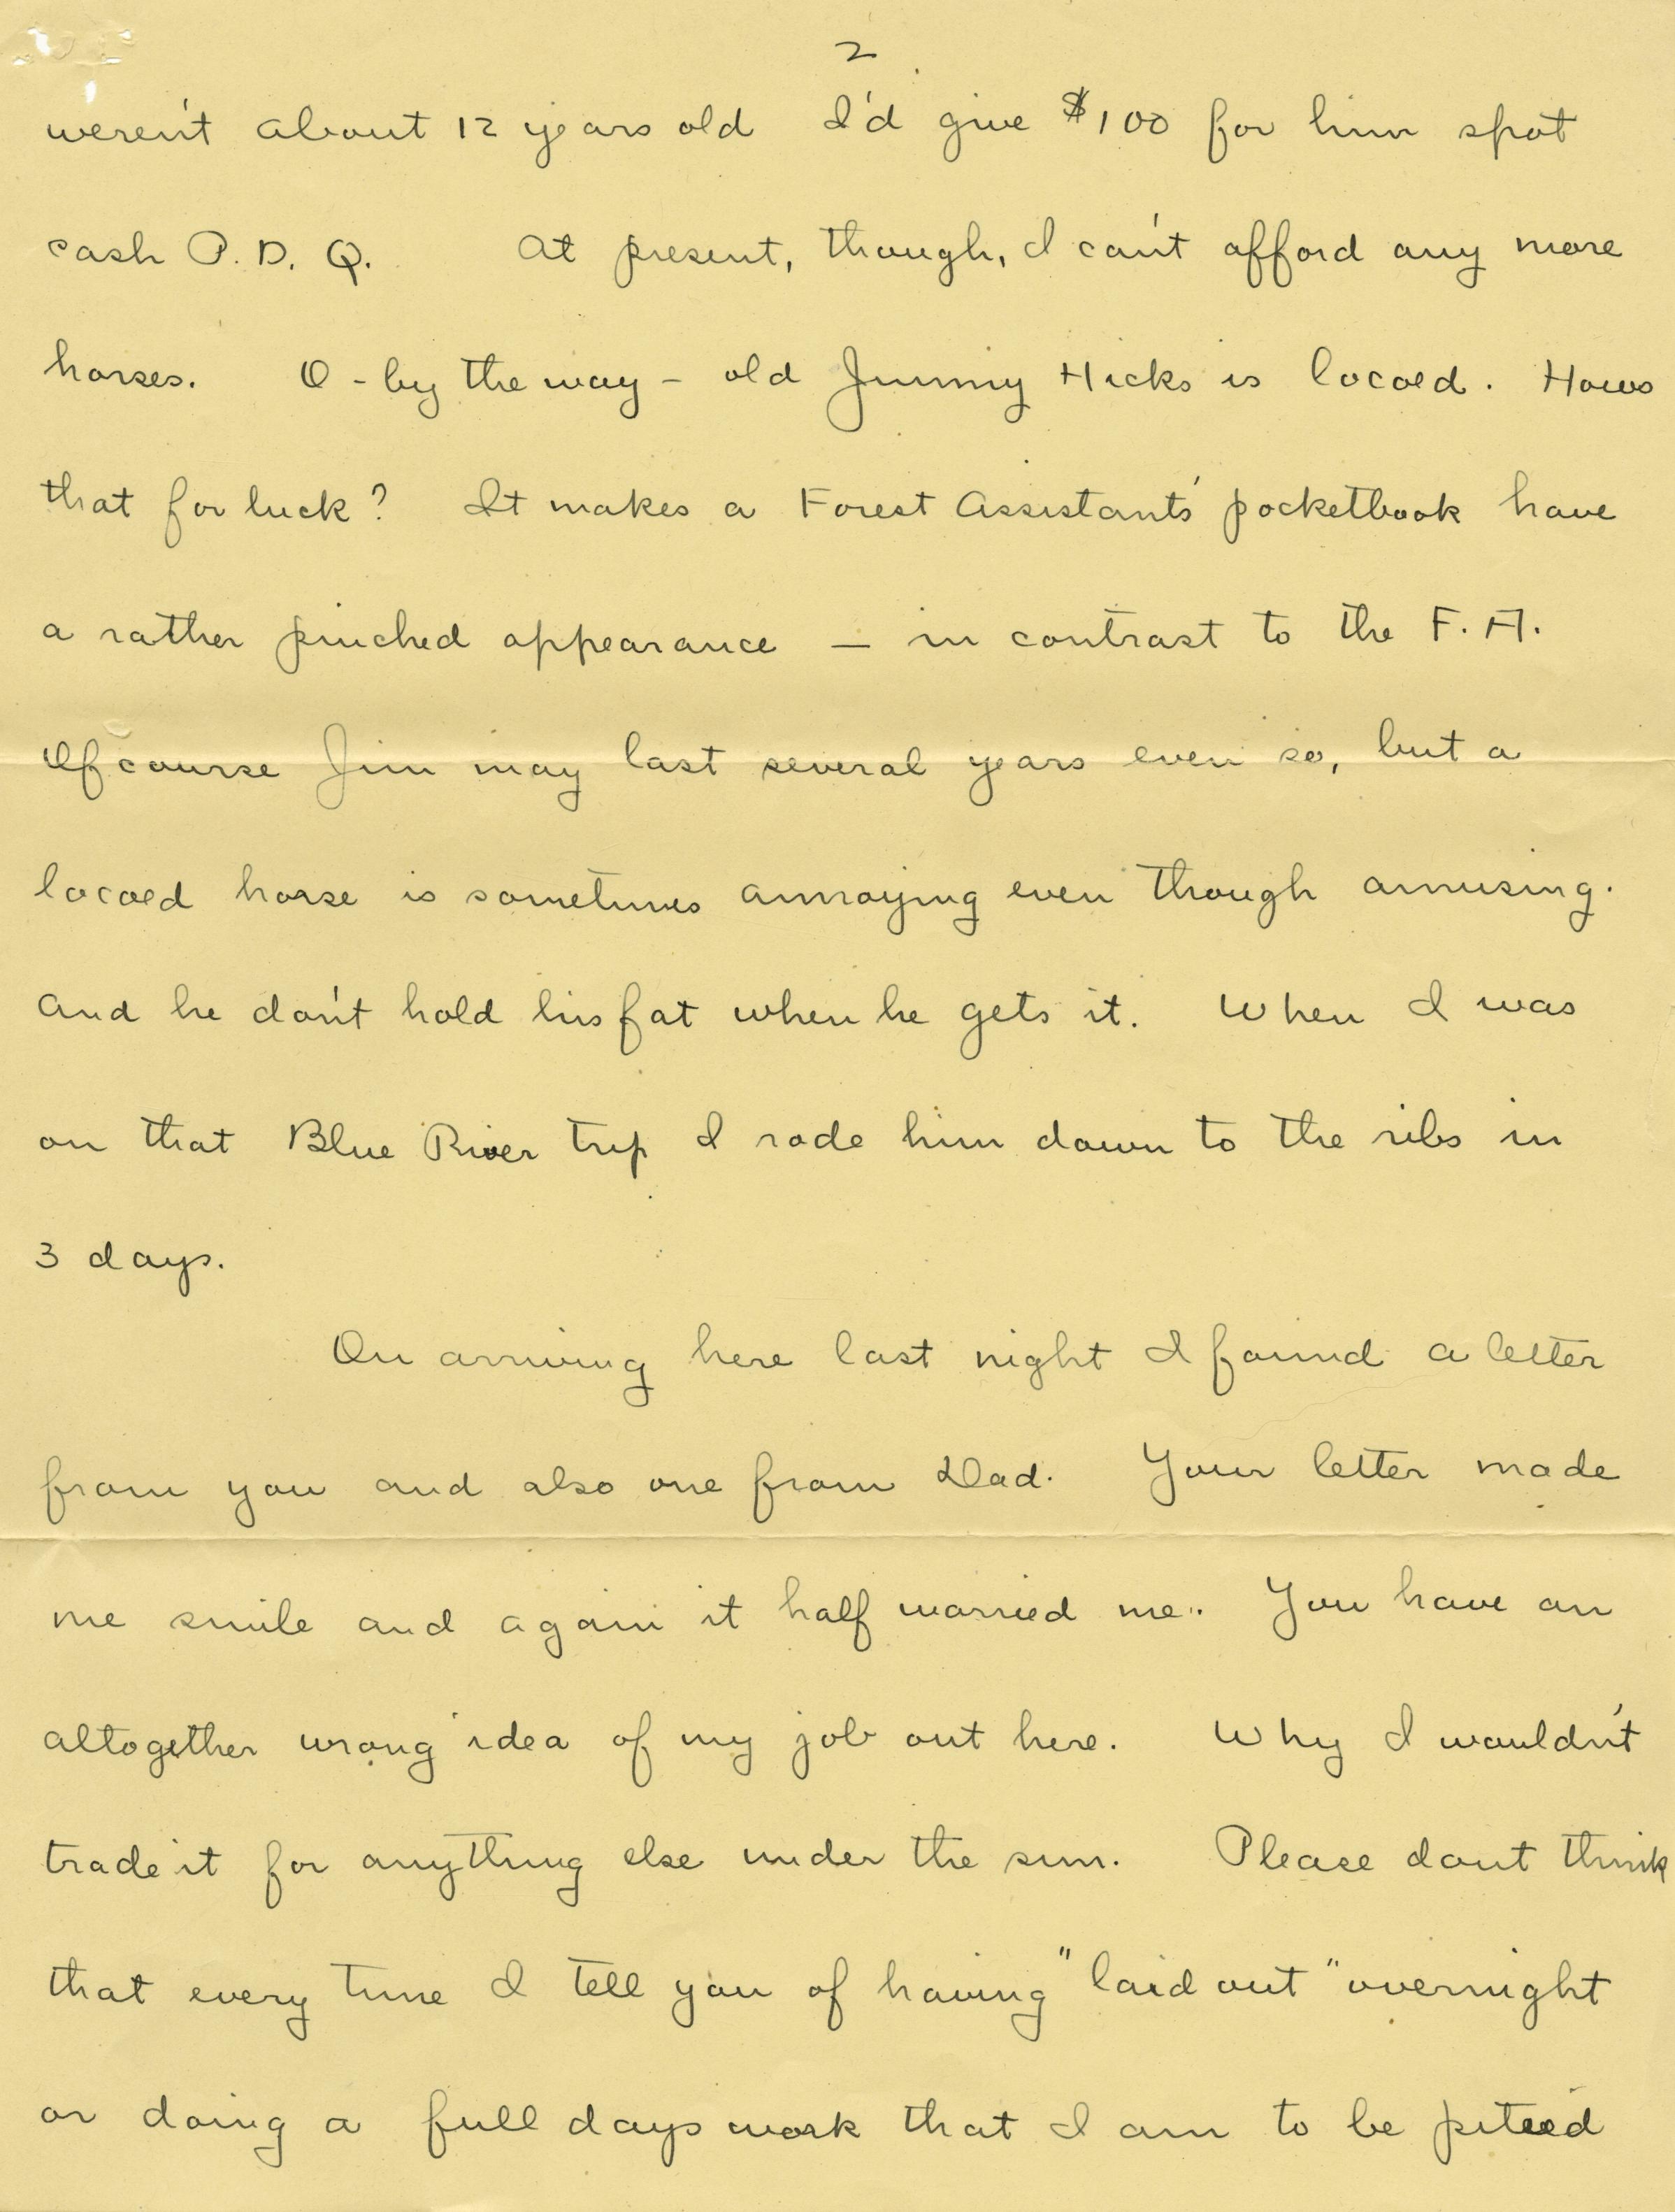 2
weren't about 12 years old I'd give $100 for him spot
cash P. D. Q. At present, though, I can't afford any more
horses. O - by the way - old Jimmy Hicks is locoed. Hows
that for luck? It makes a Forest Assistants' pocketbook have
a rather pinched appearance — in contrast to the F. A.
Of course Jim may last several years even so, but a
locoed horse is sometimes annoying even though amusing.
And he don't hold his fat when he gets it. When I was
on that Blue River trip I rode him down to the ribs in
3 days.
On arriving here last night I found a letter
from you and also one from Dad. Your letter made
me smile and again it half worried me. You have an
altogether wrong idea of my job out here. Why I wouldn't
trade it for anything else under the sun. Please dont think
that every time I tell you of having "laid out" overnight
or doing a full days work that I am to be pitied